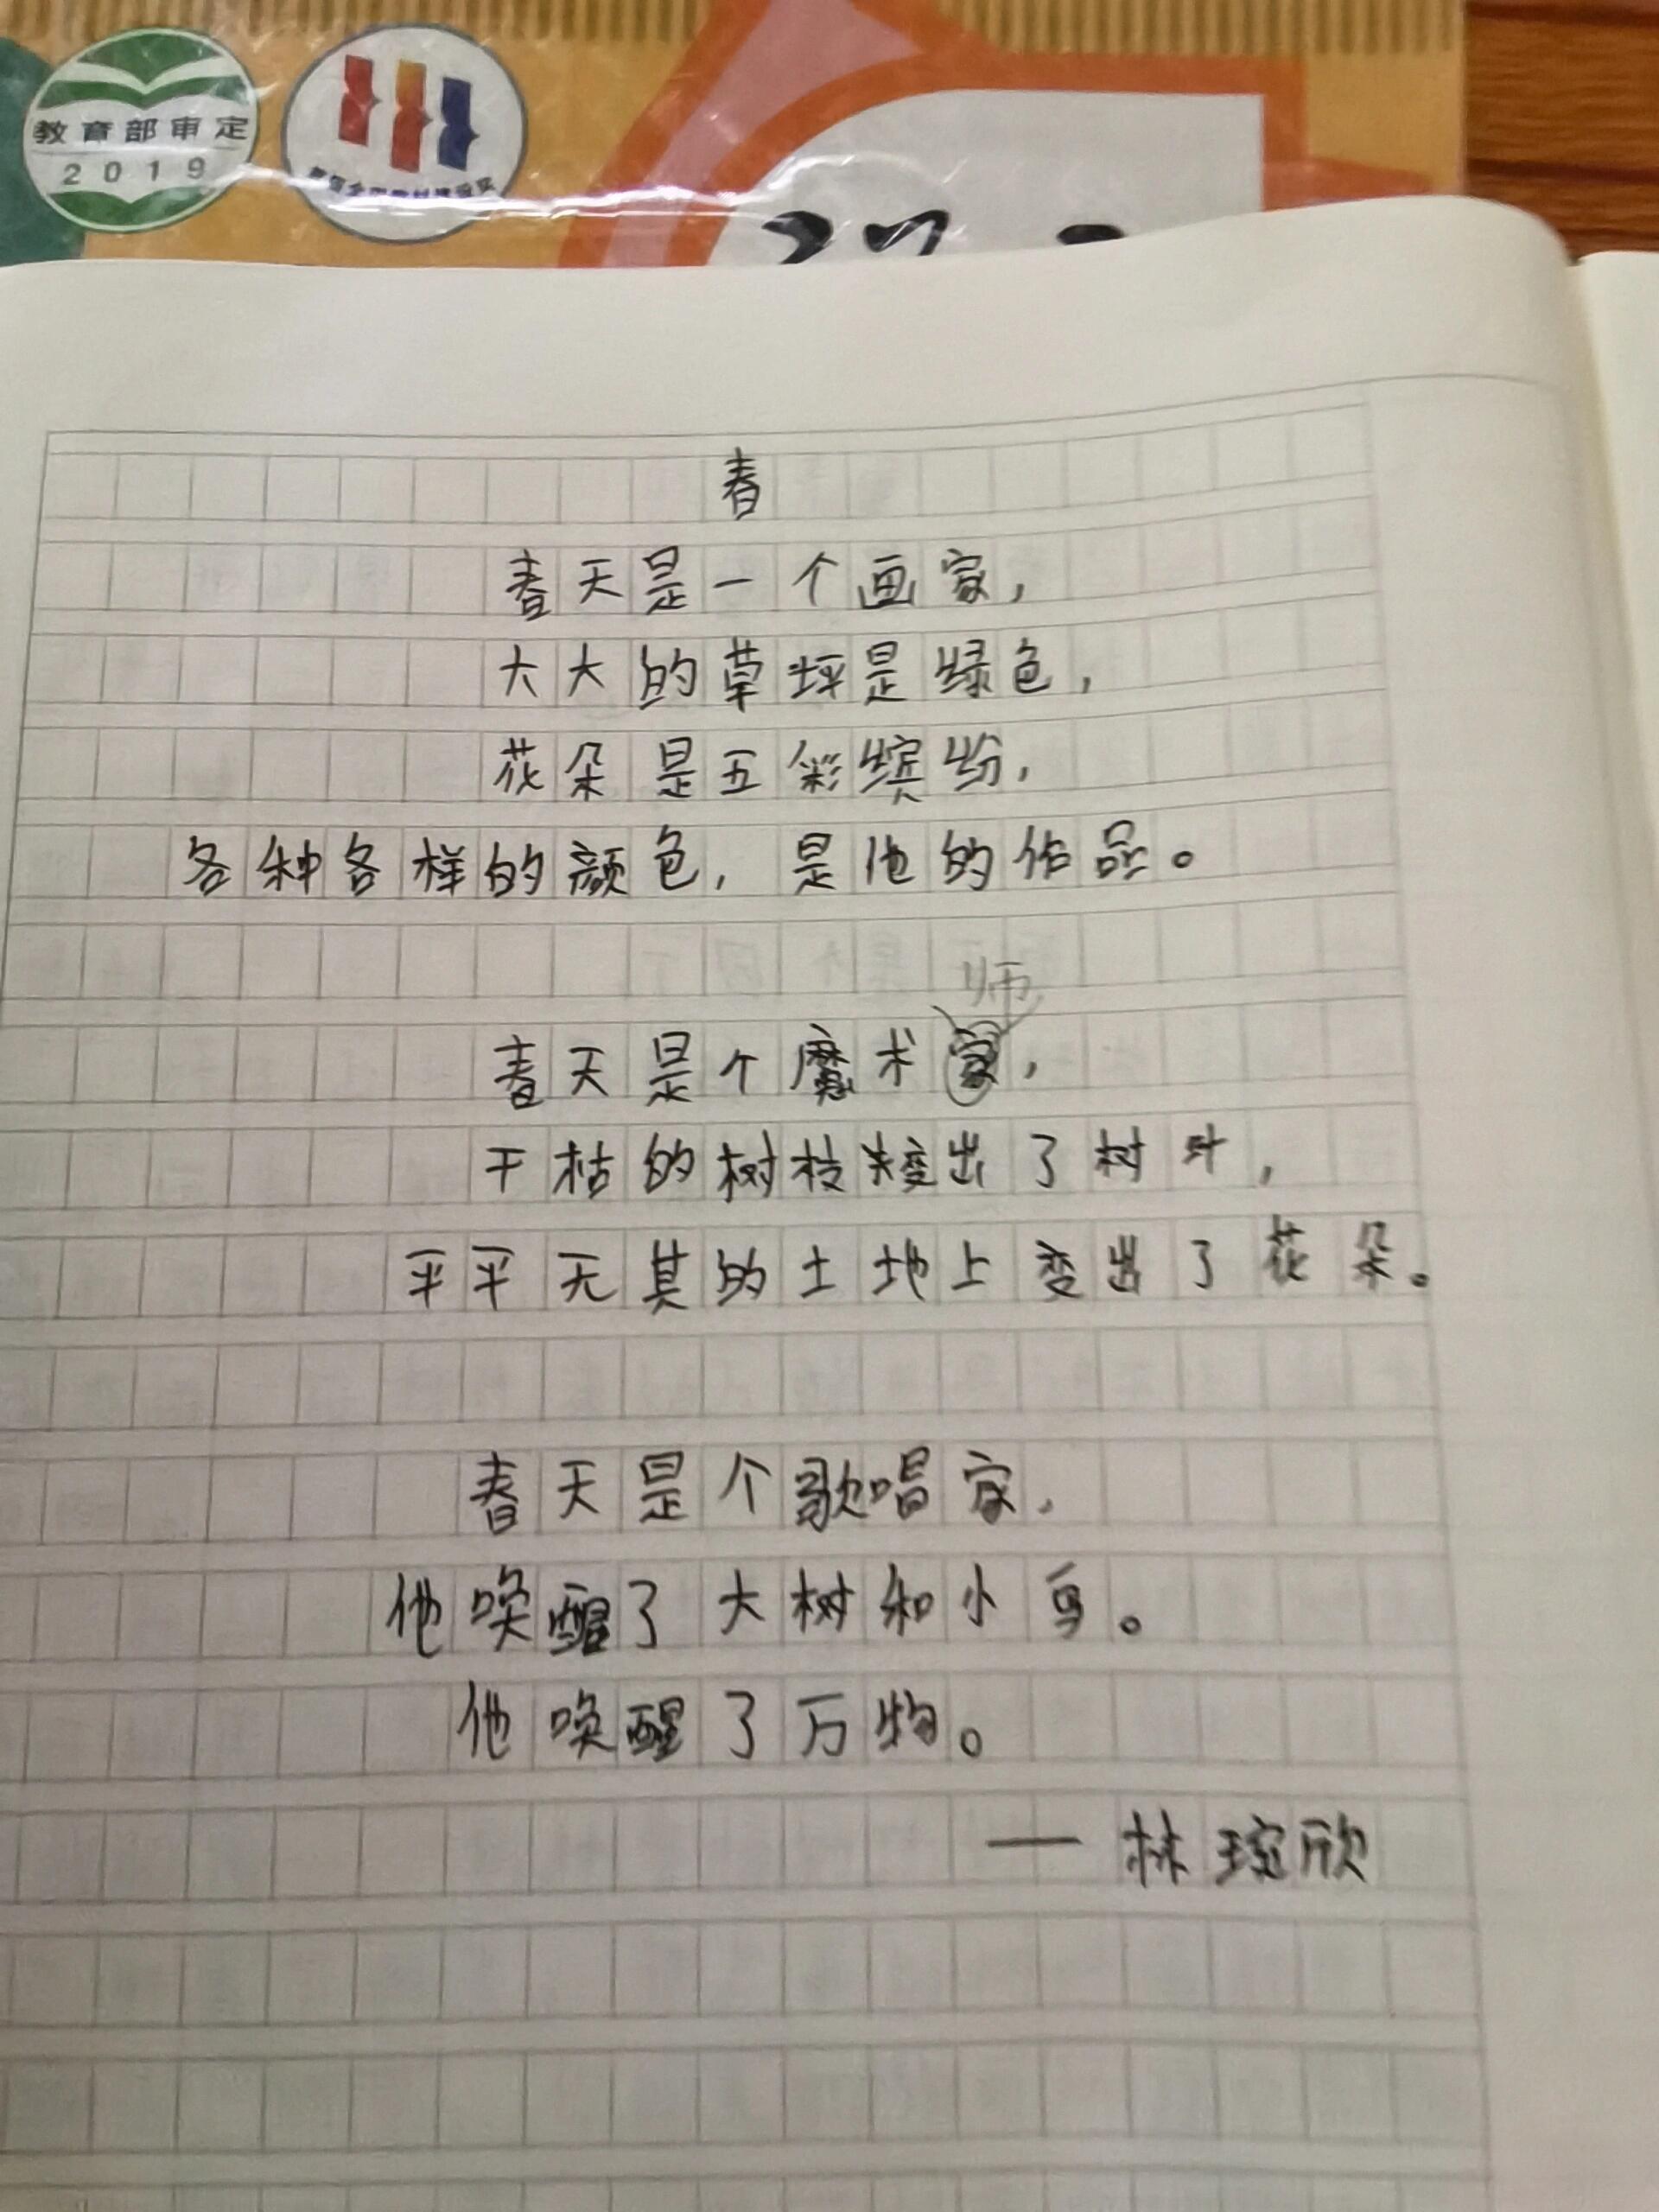 教育部审定
2019
春
春天是一个画家，
大大的草坪是绿色，
花朵是五彩缤纷，
各种各样的颜色，是他的作品。
师
春天是个魔术家，
干枯的树枝变出了树叶，
平平无其的土地上变出了花朵。
春天是个歌唱家，
他唤醒了大树和小鸟。
他唤醒了万物。
——林琬欣